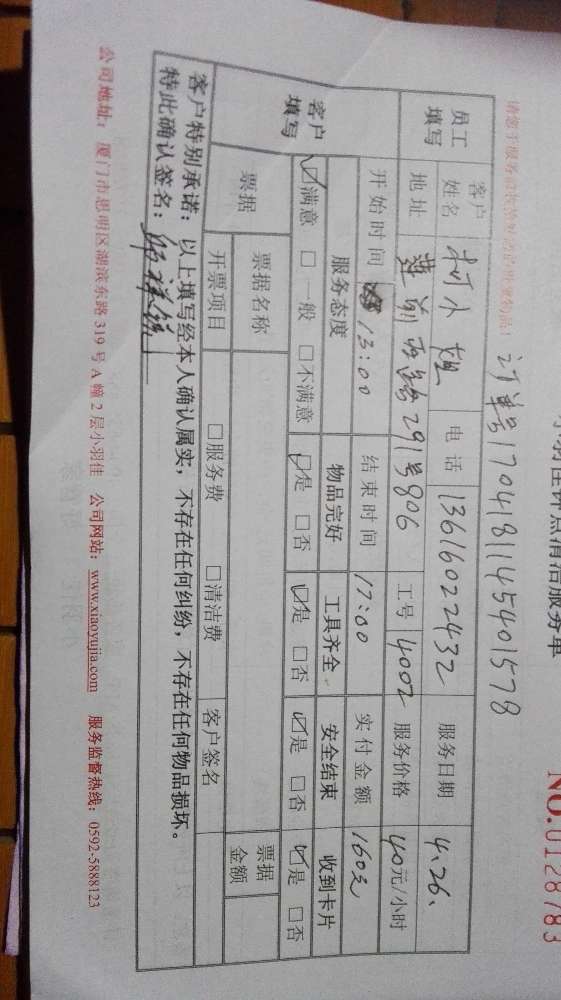 洁服务单
NO.0128783
订单号170418114540157 8
员工填写 客户姓名 柯小姐 电话 13616022432 服务日期 4.26、
地址 莲前西路291号806 工号 4002 服务价格 40元/小时
开始时间 13:00 结束时间 17:00 实付金额 160元
客户填写 服务态度 物品完好 工具齐全 安全结束 收到卡片
☑满意 □一般 □不满意 ☑是 □否 ☑是 □否 ☑是 □否 ☑是 □否
票据 票据名称 票据金额
开票项目 □服务费 □清洁费 客户签名
客户特别承诺：以上填写经本人确认属实，不存在任何纠纷，不存在任何物品损坏。
特此确认签名：
公司地址：厦门市思明区湖滨东路319号A幢2层小羽佳 公司网站：www.xiaoyujia.com 服务监督热线：0592-5888123